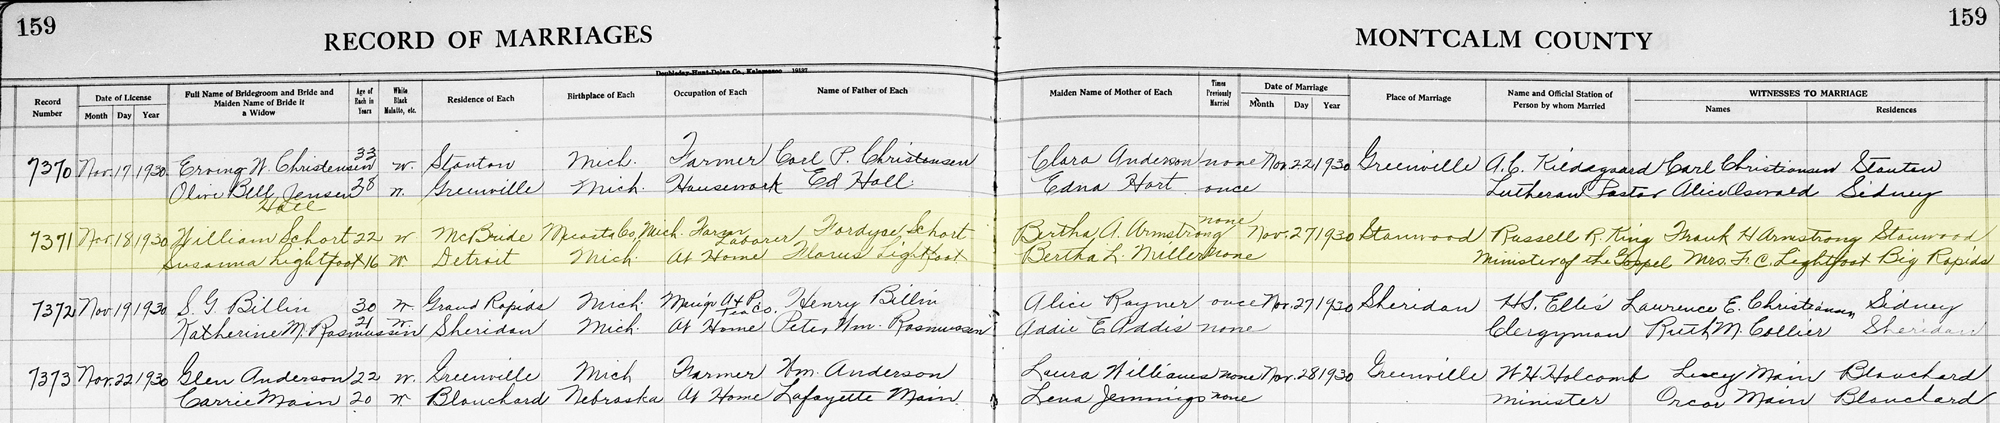 159
159
RECORD OF MARRIAGES
MONTCALM COUNTY
Doubleday-Hunt-Dolan Co., Kalamazoo
Record Number
Date of License
Month Day Year
Full Name of Bridegroom and Bride and Maiden Name of Bride if a Widow
Age of Each in Years
White Black Mulatto, etc.
Residence of Each
Birthplace of Each
Occupation of Each
Name of Father of Each
Maiden Name of Mother of Each
Times Previously Married
Date of Marriage
Month Day Year
Place of Marriage
Name and Official Station of Person by whom Married
WITNESSES TO MARRIAGE
Names Residences
7370 Nov. 17 1930 Erving W. Christensen 33 w. Stanton Mich. Farmer Carl P. Christensen Clara Anderson none Nov. 22 1930 Greenville A.C. Kildegaard Carl Christiansen Stanton
Olive Bell Jensen 38 w. Greenville Mich. Housework Ed Hall Edna Hart once Lutheran Pastor Alice Oswald Sidney
Hall
7371 Nov. 18 1930 William Schort 22 w McBride Mecosta Co, Mich. Farm Laborer Fordyce Schort Bertha A. Armstrong none Nov. 27 1930 Stanwood Russell R. King Frank H Armstrong Stanwood
Susanna Lightfoot 16 w. Detroit Mich. At Home Florus Lightfoot Bertha L. Miller none Minister of the Gospel Mrs. F. C. Lightfoot Big Rapids
7372 Nov. 19 1930 S. G. Billin 30 w Grand Rapids Mich. Man'g A & P Tea Co. Henry Billin Alice Rayner once Nov. 27 1930 Sheridan H.S. Ellis Laurence E. Christiansen Sidney
Katherine M. Rasmussen 21 w. Sheridan Mich. At Home Peter Wm. Rasmussen Addie E Addis none Clergyman Ruth M. Collier Sheridan
7373 Nov. 22 1930 Glen Anderson 22 w. Greenville Mich Farmer Wm. Anderson Laura Williams none Nov. 28 1930 Greenville W H Holcomb Lucy Main Blanchard
Carrie Main 20 w Blanchard Nebraska At Home Lafayette Main Lena Jennings none Minister Orcor Main Blanchard